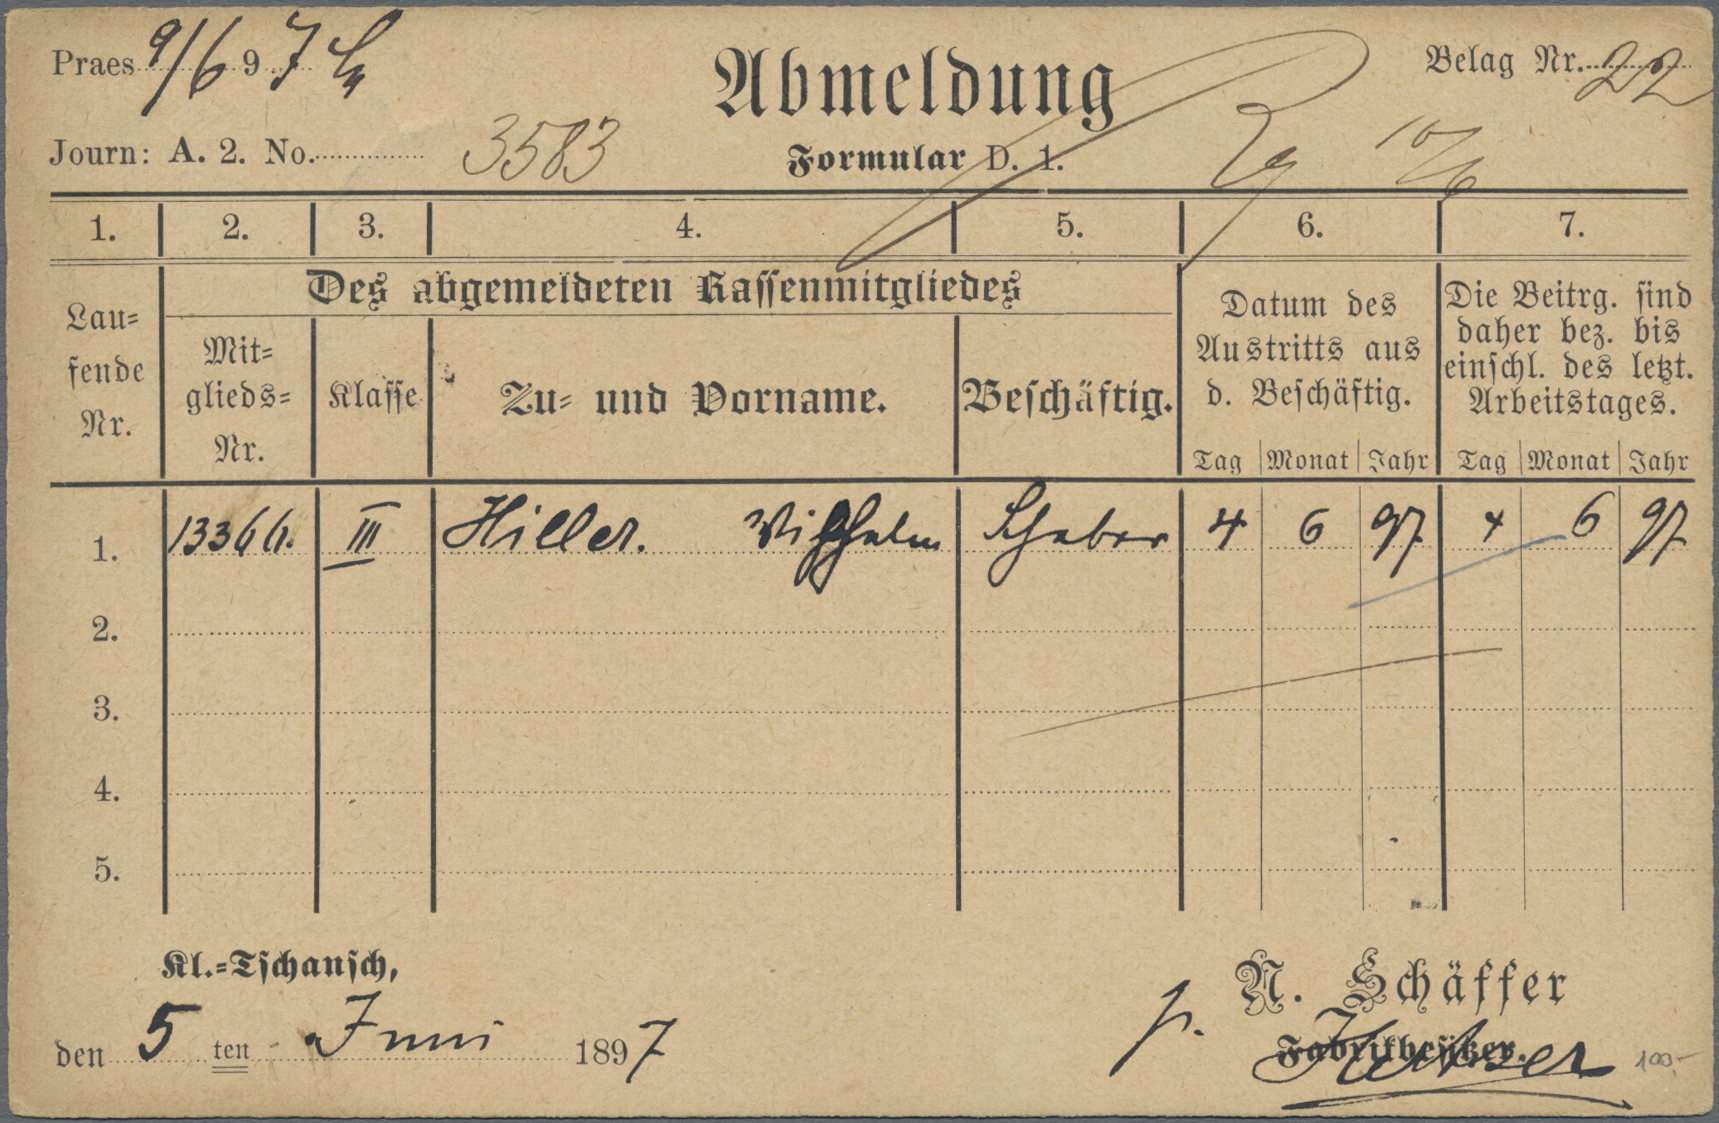 Praes 9/6 97
Abmeldung
Belag Nr. 22
Journ: A. 2. No. 3583
Formular D. 1.
10/6
1. 2. 3. 4. 5. 6. 7.
Des abgemeldeten Kassenmitgliedes
Lau=
fende
Nr.
Mit=
glieds=
Nr.
Klasse
Zu= und Vorname.
Beschäftig.
Datum des
Austritts aus
d. Beschäftig.
Tag Monat Jahr
Die Beitrg. sind
daher bez. bis
einschl. des letzt.
Arbeitstages.
Tag Monat Jahr
1. III Hiller. Wilhelm 4 6 97 4 6 97
2.
3.
4.
5.
Kl.=Tschansch,
den 5 ten Juni 1897
p. N. Schäffer
Fabrikbesitzer.
100,-